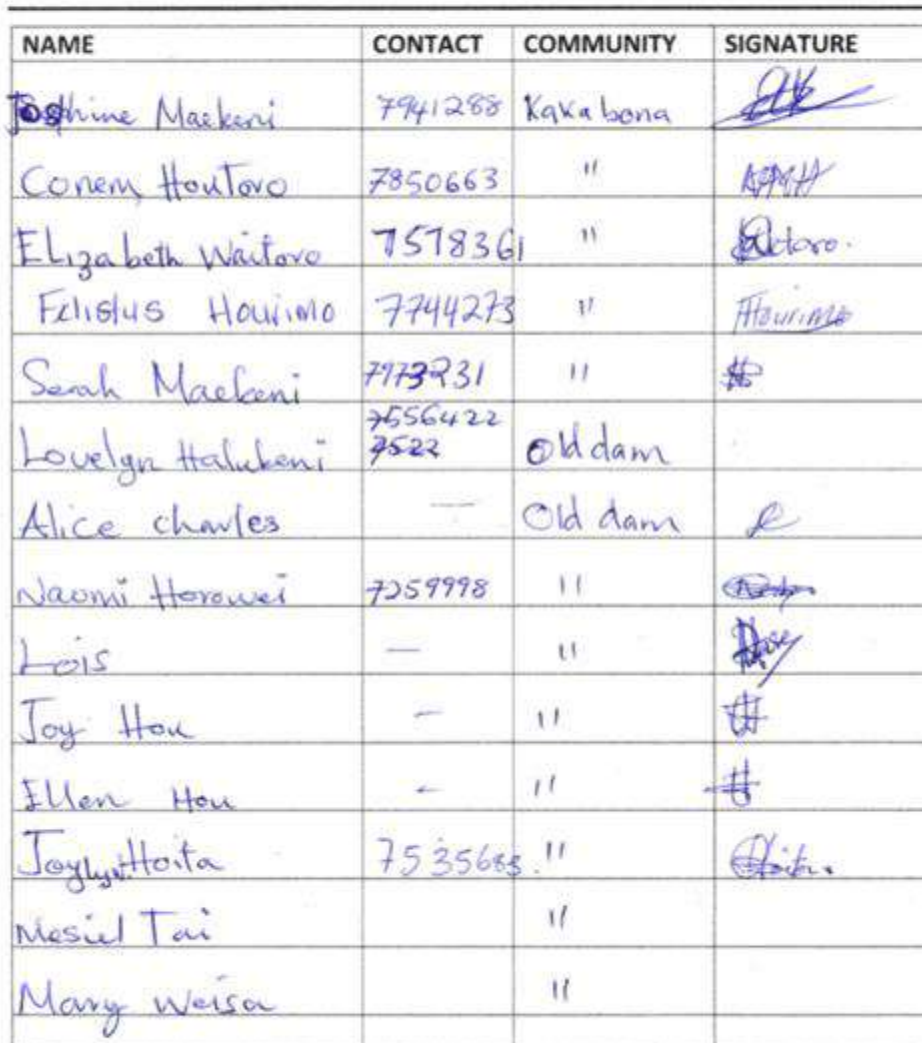 NAME CONTACT COMMUNITY SIGNATURE
Josphine Maekeni 7941288 Kakabona
Conem Houtovo 7850663 "
Elizabeth Waitovo 7578361 "
Felistus Hourimo 7744273 " Hourimo
Serah Maekeni 7973231 "
7556422
Lovelyn Halukeni 7522 Old dam
Alice charles — Old dam
Naomi Horowei 7259998 "
Lois — "
Joy Hou – "
Ellen Hou – "
Joylyn Hoita 7535683 "
Mesiel Tai "
Mary Weisa "